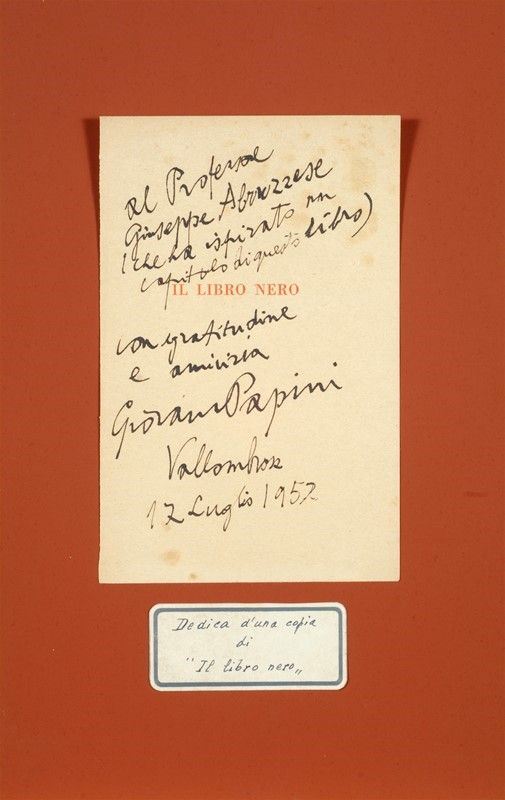 al Professore
Giuseppe Abruzzese
(che ha ispirato un
capitolo di questo libro)
IL LIBRO NERO
con gratitudine
e amicizia
Giovanni Papini
Vallombrosa
17 Luglio 1952
Dedica d'una copia
di
"Il libro nero„